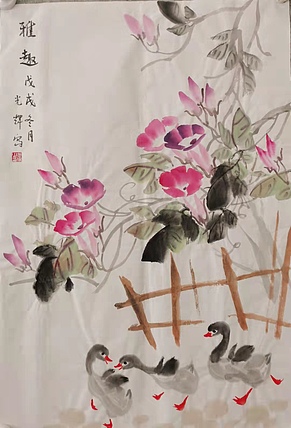 雅趣
戊戌冬月
光辉写